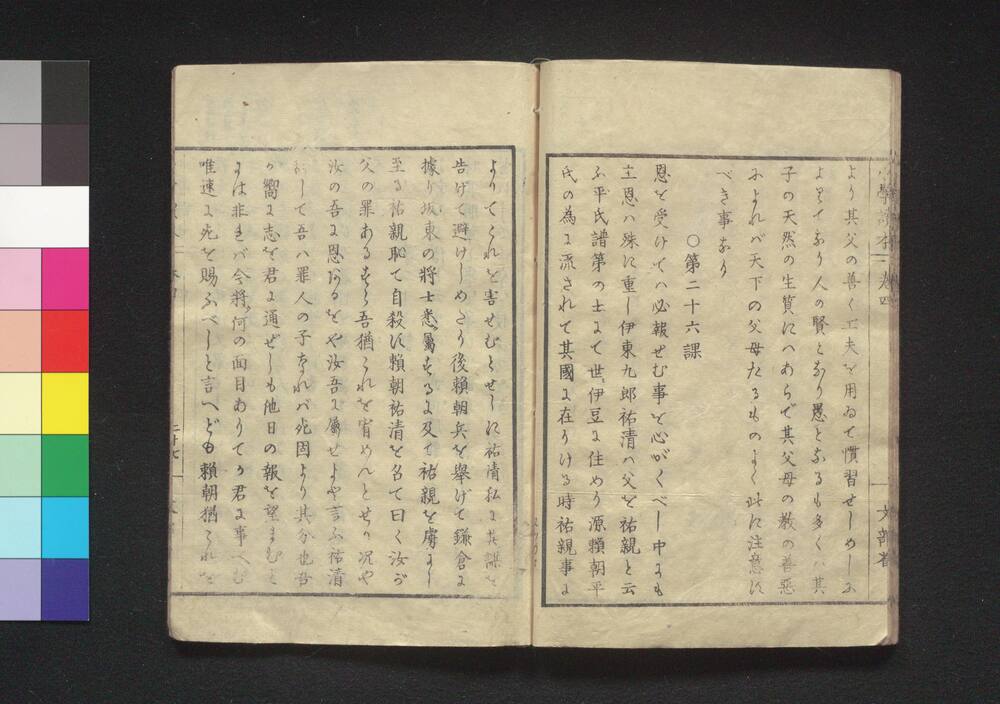 小學讀本 巻四
文部省
より其父の善く工夫を用ゐて慣習せしめしに
よりてなり人の賢となり愚となるも多くハ其
子の天然の生質にハあらで其父母の教の善惡
によれバ天下の父母たるものよく此に注意す
べき事なり
○第二十六課
恩を受けてハ必報せむ事を心がくべし中にも
主恩ハ殊に重し伊東九郎祐清ハ父を祐親と云
ふ平氏譜第の士にて世〻伊豆に住めり源頼朝平
氏の為に流されて其國に在りける時祐親事に
よりてこれを害せむとせしに祐清私に其謀を
告げて避けしめたり後頼朝兵を舉げて鎌倉に
據り坂東の将士悉〻屬するに及て祐親を虜にし
至る祐親恥て自殺す頼朝祐清を召て曰く汝が
父の罪あるすら吾猶これを宥めんとせり况や
汝の吾に恩あるをや汝吾に屬せよや言ふ祐清
して吾ハ罪人の子なれバ死固より其分也吾
が嚮に志を君に通ぜしも他日の報を望まむと
には非ざれバ今将〻何の面目ありてか君に事へむ
唯速に死を賜ふべしと言へども頼朝猶これを
二十七